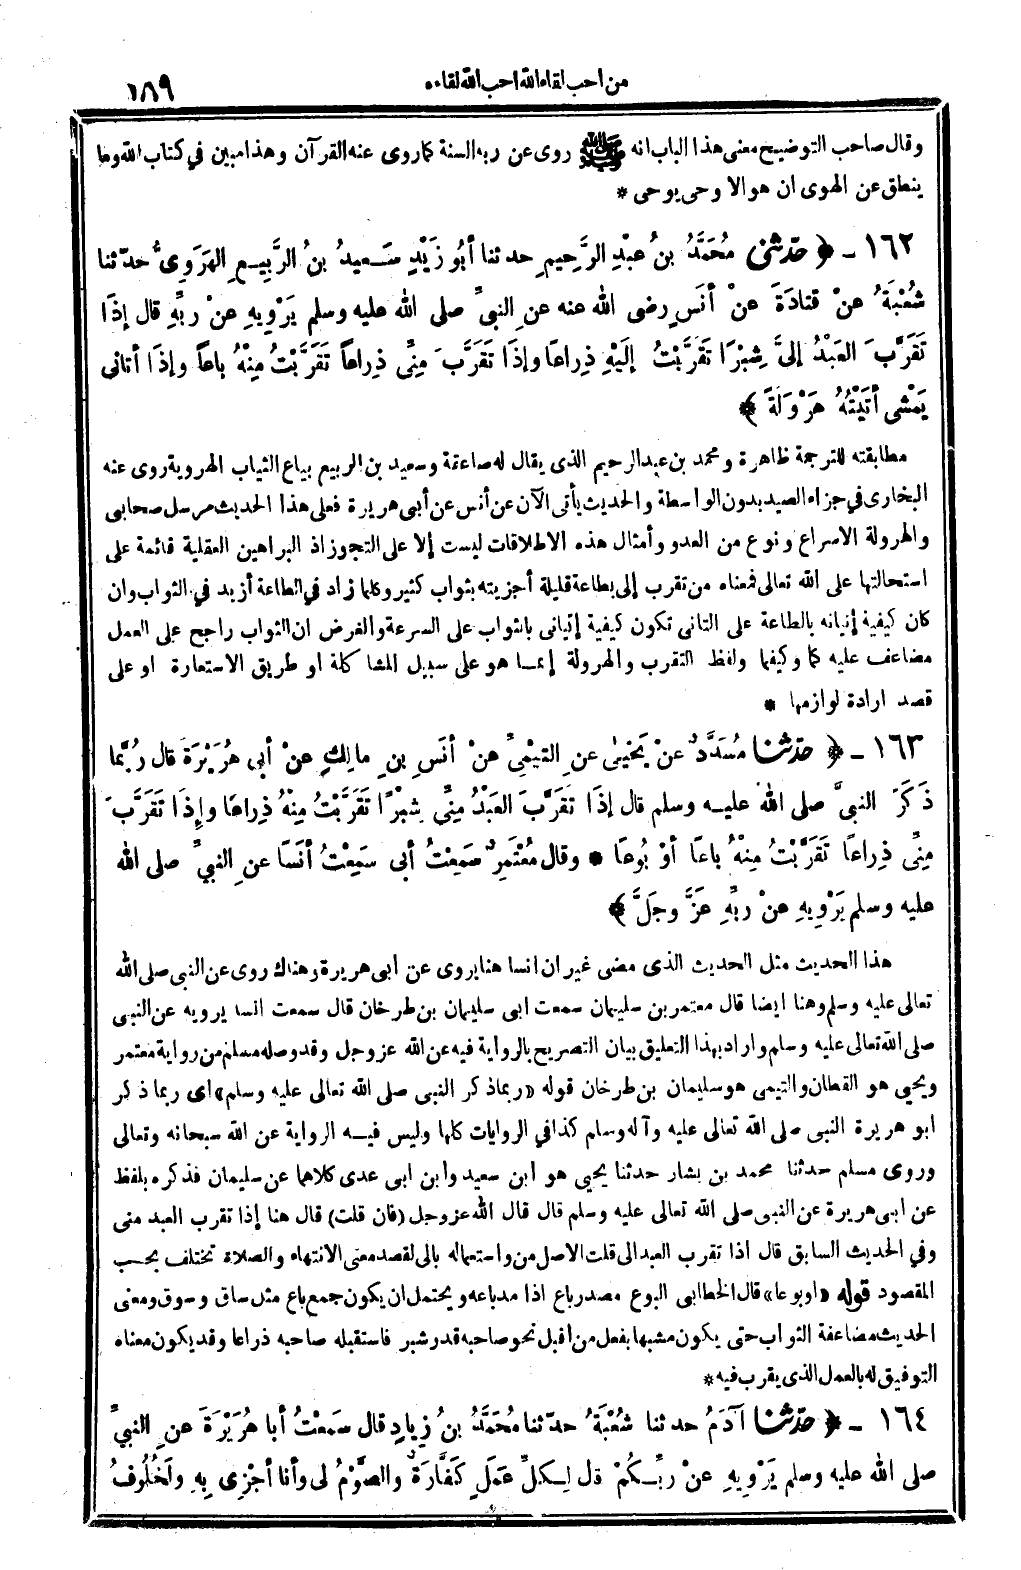 من أحب لقاء الله احب الله لقاءه ١٨٩
وقال صاحب التوضيح معنى هذا الباب انه ﷺ روى عن ربه السنة كما روى عنه القرآن وهذا مبين في كتاب الله وما
ينطق عن الهوى ان هو الا وحى يوحى *
١٦٢ - ﴿ حدّثنى مُحَمَّدُ بنُ عبْدِ الرَّحِيمِ حدثنا أبُو زَيْدٍ سَعِيدُ بنُ الرَّبِيعِ الهَرَوِىُّ حدّثنا
شُعْبَةُ عنْ قتادَةَ عنْ أنَسٍ رضى الله عنه عنِ النبيِّ صلى الله عليه وسلم يَرْوِيهِ عنْ ربِّهِ قال إذَا
تَقَرَّبَ العَبْدُ إلىَّ شِبْرًا تَقَرَّبْتُ إلَيْهِ ذِراعًا وإذَا تَقَرَّبَ مِنِّى ذِراعاً تَقَرَّبْتُ مِنْهُ باعاً وإذَا أتانى
يَمْشى أتَيْتُهُ هَرْوَلَةً ﴾ *
مطابقته للترجمة ظاهرة ومحمد بن عبد الرحيم الذى يقال له صاعقة وسعيد بن الربيع بياع الثياب الهروية روى عنه
البخارى في جزاء الصيد بدون الواسطة والحديث يأتى الآن عن أنس عن أبى هريرة فعلى هذا الحديث مرسل صحابى
والهرولة الاسراع ونوع من العدو وأمثال هذه الاطلاقات ليست إلا على التجوز اذ البراهين العقلية قائمة على
استحالتها على الله تعالى فمعناه من تقرب إلى بطاعة قليلة أجزيته بثواب كثير وكلما زاد في الطاعة أزيد في الثواب وان
كان كيفية إتيانه بالطاعة على التانى تكون كيفية إتيانى بالثواب على السرعة والغرض ان الثواب راجح على العمل
مضاعف عليه كما وكيفما ولفظ التقرب والهرولة إنما هو على سبيل المشاكلة او طريق الاستعارة او على
قصد ارادة لوازمها *
١٦٣ - ﴿ حدّثنا مُسَدَّدٌ عنْ يَحْيىٰ عنِ التيْمِىِّ عنْ أنَسِ بنِ مالِكٍ عنْ أبى هُرَيْرَةَ قال رُبَّما
ذَكَرَ النبيَّ صلى الله عليه وسلم قال إذَا تَقَرَّبَ العَبْدُ مِنِّى شِبْرًا تَقَرَّبْتُ مِنْهُ ذِراعًا وإِذَا تَقَرَّبَ
مِنِّى ذِراعًا تَقَرَّبْتُ مِنْهُ باعًا أوْ بُوعًا * وقال مُعْتَمِرٌ سَمِعْتُ أبى سَمِعْتُ أنَسًا عنِ النبيِّ صلى الله
عليه وسلم يَرْوِيهِ عنْ ربِّهِ عَزَّ وجَلَّ ﴾ *
هذا الحديث مثل الحديث الذى مضى غير ان انسا هنا يروى عن ابى هريرة وهناك روى عن النبى صلى الله
تعالى عليه وسلم وهنا ايضا قال معتمر بن سليمان سمعت ابى سليمان بن طرخان قال سمعت انسا يرويه عن النبى
صلى الله تعالى عليه وسلم واراد بهذا التعليق بيان التصريح بالرواية فيه عن الله عز وجل وقد وصله مسلم من رواية معتمر
ويحيى هو القطان والتيمى هو سليمان بن طرخان قوله «ربما ذكر النبى صلى الله تعالى عليه وسلم» اى ربما ذكر
ابو هريرة النبى صلى الله تعالى عليه وآله وسلم كذا في الروايات كلها وليس فيه الرواية عن الله سبحانه وتعالى
وروى مسلم حدثنا محمد بن بشار حدثنا يحيى هو ابن سعيد وابن ابى عدى كلاهما عن سليمان فذكره بلفظ
عن ابى هريرة عن النبى صلى الله تعالى عليه وسلم قال قال الله عز وجل (فان قلت) قال هنا إذا تقرب العبد منى
وفي الحديث السابق قال اذا تقرب العبد الى قلت الاصل من واستعماله بالى لقصد معنى الانتهاء والصلاة تختلف بحسب
المقصود قوله «او بوعا» قال الخطابى البوع مصدر باع اذا مد باعه ويحتمل ان يكون جمع باع مثل ساق وسوق ومعنى
الحديث مضاعفة الثواب حتى يكون مشبها بفعل من اقبل نحو صاحبه قدر شبر فاستقبله صاحبه ذراعا وقد يكون معناه
التوفيق له بالعمل الذى يقرب فيه *
١٦٤ - ﴿ حدّثنا آدَمُ حدثنا شُعْبَةُ حدّثنا مُحَمَّدُ بنُ زِيادٍ قال سَمعْتُ أبا هُرَيْرَةَ عنِ النبيِّ
صلى الله عليه وسلم يَرْوِيهِ عنْ ربِّكُمْ قال لِكلِّ عَمَلٍ كَفَّارَةٌ والصَّوْمُ لى وأنا أجْزِى بِهِ ولَخُلُوفُ